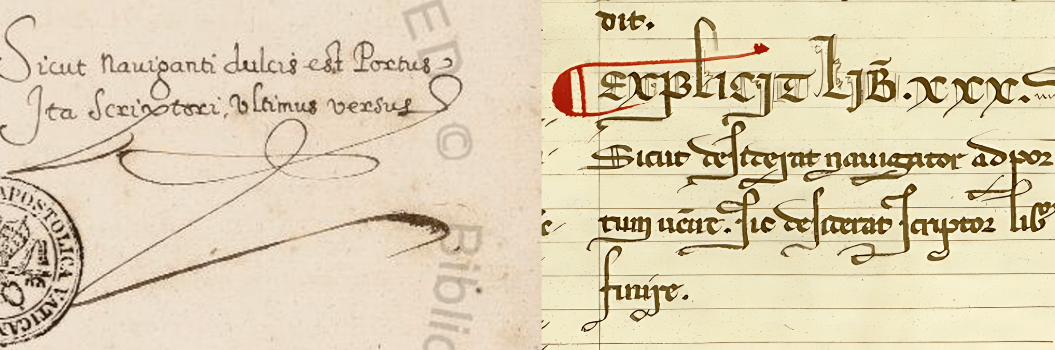 Sicut naviganti dulcis est Portus
Ita Scriptori, Vltimus versus
APOSTOLICA VATICAN
ED ©
Biblio
dit.
EXPLICIT LIB̄. xxx.
Sicut desiderat nauigator ad por
tum uēire. sic desiderat scriptor
finire.